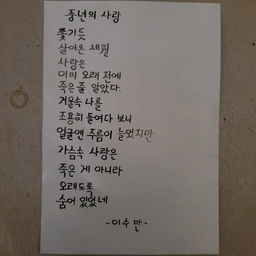 중년의 사랑
쫓기듯
살아온 세월
사랑은
이미 오래 전에
죽은 줄 알았다.
거울속 나를
조용히 들여다 보니
얼굴엔 주름이 늘었지만
가슴속 사랑은
죽은 게 아니라
오래도록
숨어 있었네
-이수만-